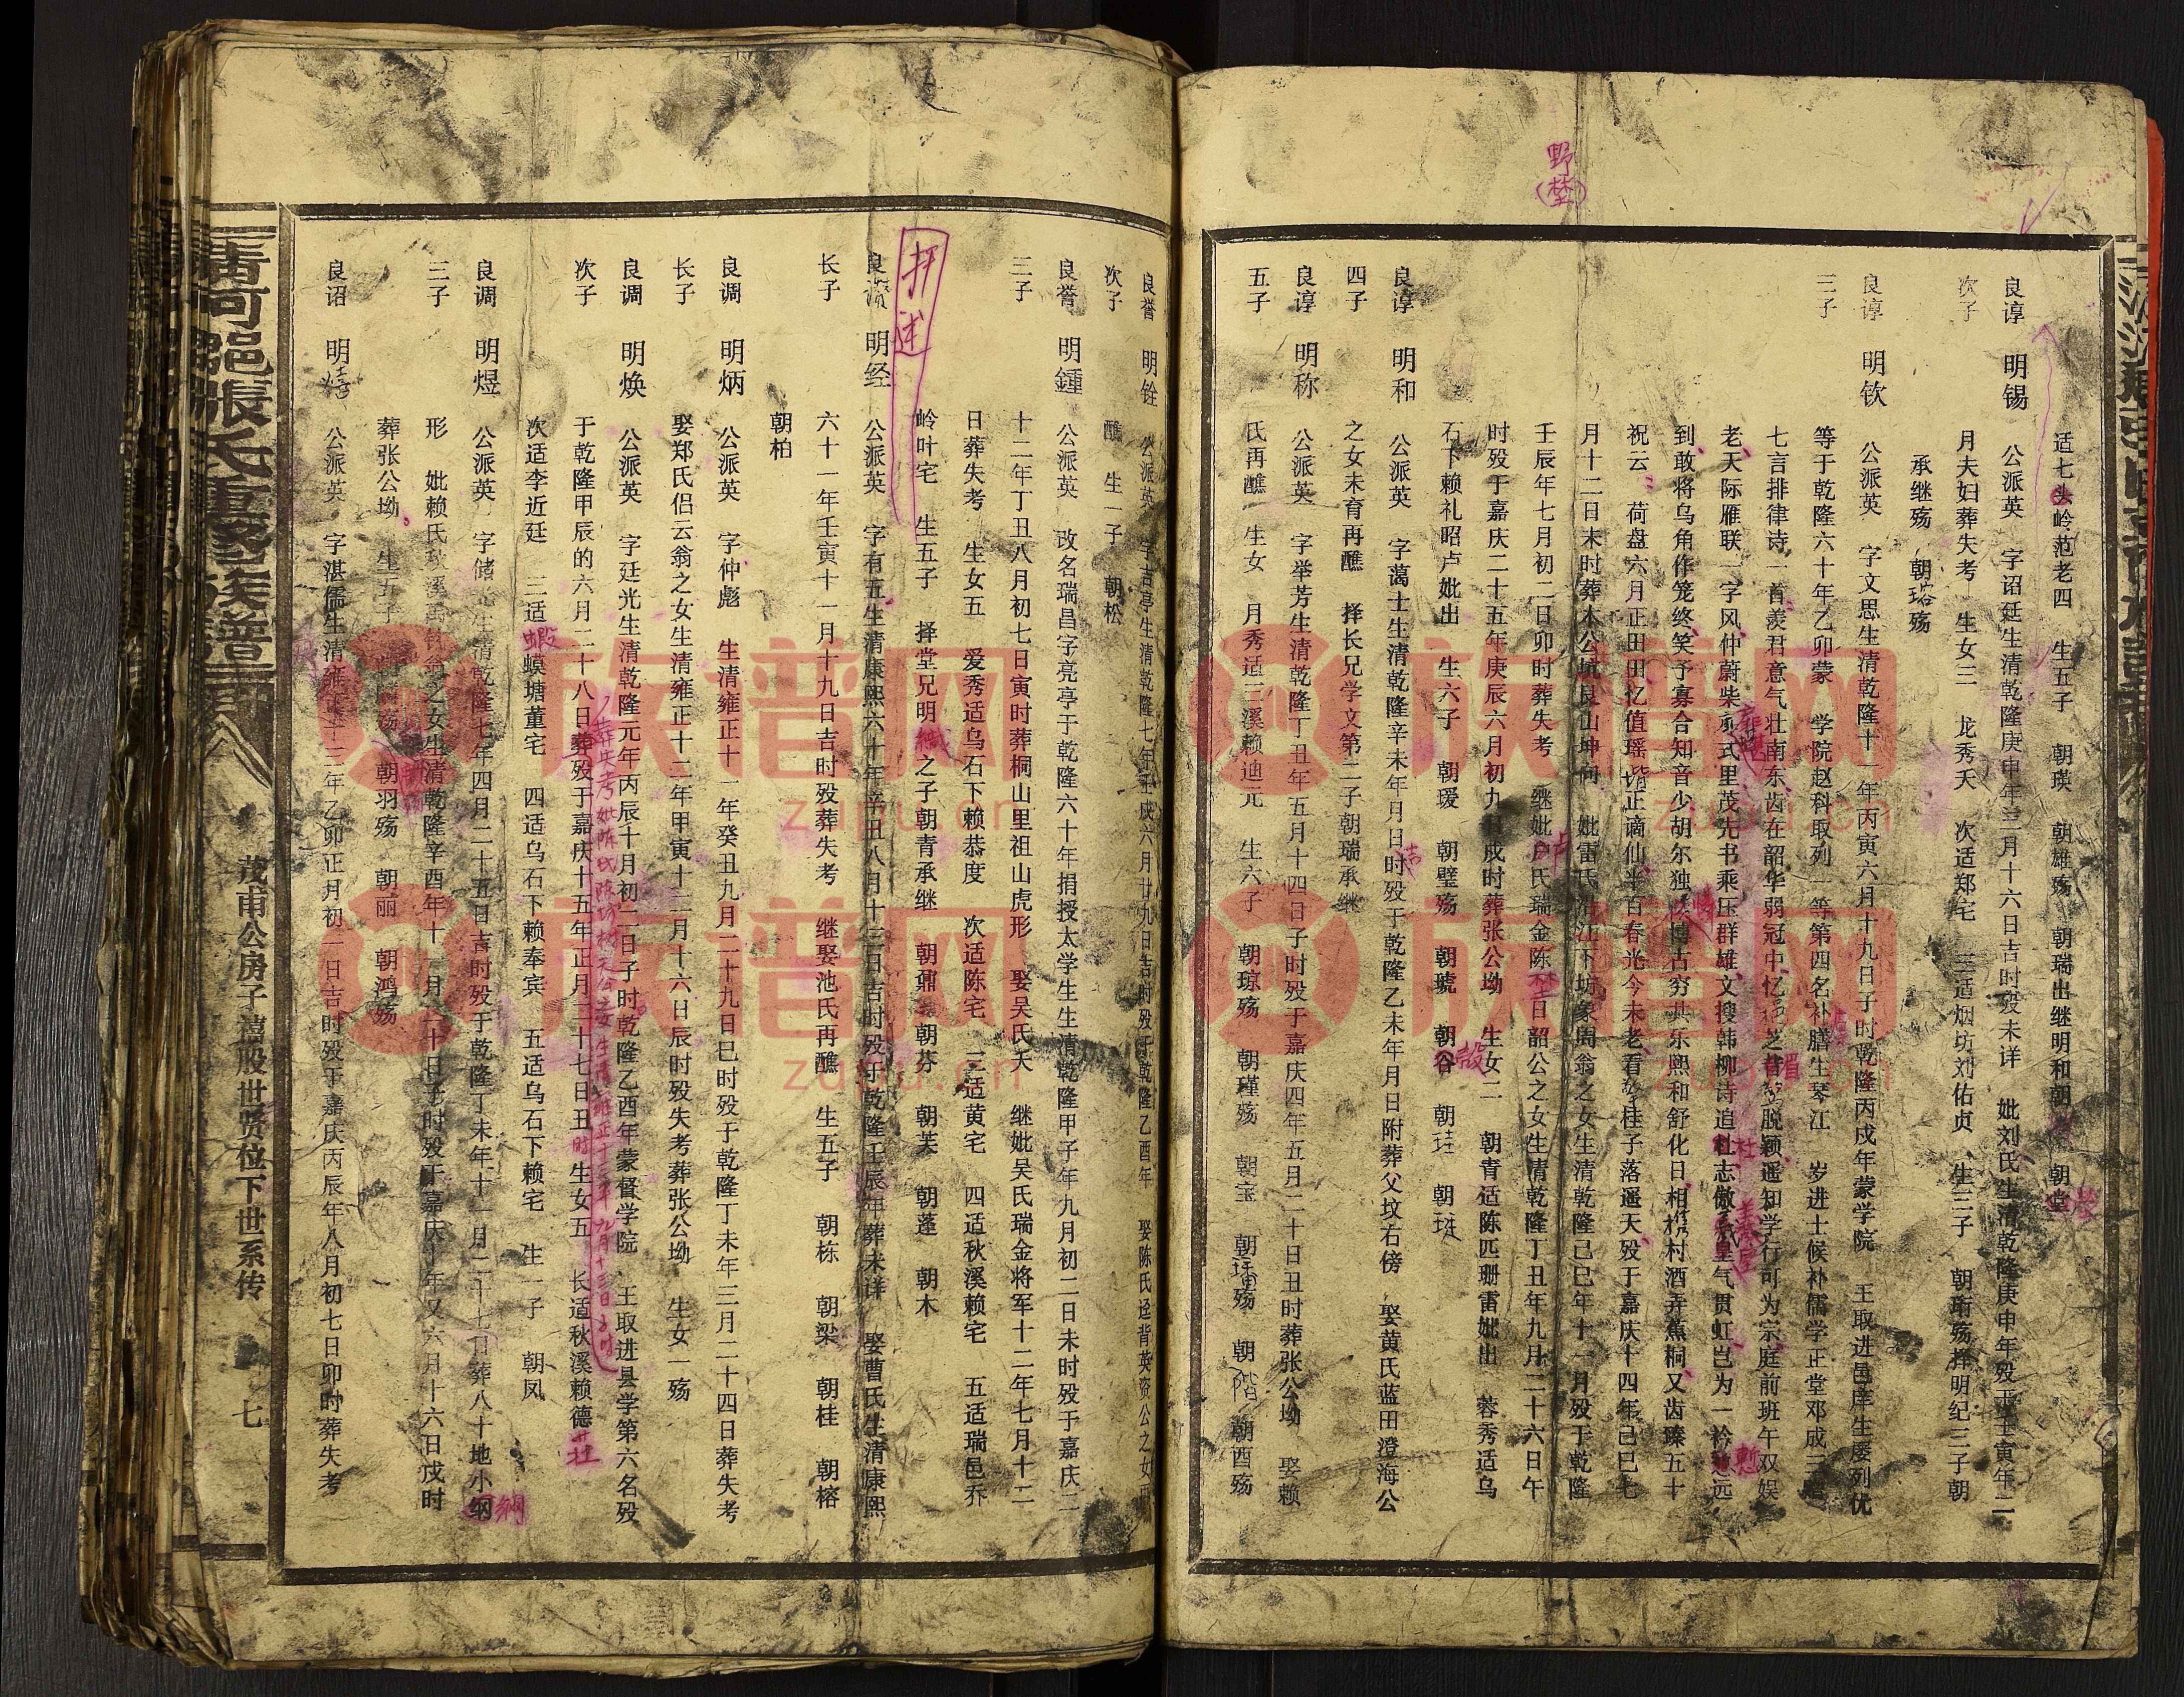 适七头岭范老四　生五子　朝瑛　朝雄殇　朝瑞出继明和朝　朝堂
良谆　明锡　公派英　字诏廷生清乾隆庚申年三月十六日吉时殁未详　妣刘氏生清乾隆庚申年殁于壬寅年二
次子　月夫妇葬失考　生女三　龙秀夭　次适郑宅　三适烟坊刘佑贞　生三子　朝珩殇择明纪三子朝
承继殇　朝瑢殇
良谆　明钦　公派英　字文思生清乾隆十一年丙寅六月十九日子时乾隆丙戌年蒙学院　王取进邑庠生屡列优
三子　等于乾隆六十年乙卯蒙　学院赵科取列一等第四名补膳生琴江　岁进士候补儒学正堂邓成三
七言排律诗一首羡君意气壮南东、齿在韶华弱冠中、忆　芝眉　脱颖遥知学行可为宗、庭前班午双娱
老、天际雁联一字风、仲蔚柴　式里茂先书乘压群雄、文搜韩柳诗追杜、志傲羲皇气贯虹、岂为一衿　远
到、敢将乌角作笼终、笑予寡合知音少胡尔独　博古穷共乐熙和舒化日、相　村酒弄蕉桐、又齿臻五十
祝云、荷盘六月正田田忆值瑶　正谪仙半百春光今未老、看　桂子落遥天殁于嘉庆十四年己巳七
月十二日未时葬木公坑艮山坤向　妣雷氏　江下坊象周翁之女生清乾隆己巳年十一月殁于乾隆
壬辰年七月初二日卯时葬失考　继妣卢氏瑞金陈埜日韶公之女生清乾隆丁丑年九月二十六日午
时殁于嘉庆二十五年庚辰六月初九　戌时葬张公坳　生女二　朝青适陈匹珊雷妣出　蓉秀适乌
石下赖礼昭卢妣出　生六子　朝瑷　朝璧殇　朝琥　朝谷　朝珪　朝
良谆　明和　公派英　字蔼士生清乾隆辛未年月日时殁于乾隆乙未年月日附葬父坟右傍　娶黄氏蓝田澄海公
四子　之女未育再醮　择长兄学文第二子朝瑞承继
良谆　明称　公派英　字举芳生清乾隆丁丑年五月十四日子时殁于嘉庆四年五月二十日丑时葬张公坳　娶赖
五子　氏再醮　生女　月秀适三溪赖迪元　生六子　朝琼殇　朝瑾殇　朝宝　朝　殇　朝　朝酉殇
野
（埜）
良誉　明铨　公派英　字吉亭生清乾隆七年壬戌六月廿九日吉时殁于乾隆乙酉年　娶陈氏迳背英资公之女再
次子　醮　生一子　朝松
良誉　明鍾　公派英　改名瑞昌字亮亭于乾隆六十年捐授太学生生清乾隆甲子年九月初二日未时殁于嘉庆二
三子　十二年丁丑八月初七日寅时葬桐山里祖山虎形　娶吴氏夭　继妣吴氏瑞金将军十二年七月十二
日葬失考　生女五　爱秀适乌石下赖恭度　次适陈宅　三适黄宅　四适秋溪赖宅　五适瑞邑乔
岭叶宅　生五子　择堂兄明缄之子朝青承继　朝鼐　朝芬　朝芙　朝蓬　朝木
良　明经　公派英　字有五生清康熙六十年辛丑八月十三日吉时殁于乾隆壬辰年葬未详　娶曹氏生清康熙
长子　六十一年壬寅十一月十九日吉时殁葬失考　继娶池氏再醮　生五子　朝栋　朝梁　朝桂　朝榕
朝柏
良调　明炳　公派英　字仲彪　生清雍正十一年癸丑九月二十九日巳时殁于乾隆丁未年三月二十四日葬失考
长子　娶郑氏侣云翁之女生清雍正十二年甲寅十二月十六日辰时殁失考葬张公坳　生女一殇
良调　明焕　公派英　字廷光生清乾隆元年丙辰十月初二日子时乾隆乙酉年蒙督学院　王取进县学第六名殁
次子　于乾隆甲辰的六月二十八日葬殁于嘉庆十五年正月二十七日丑时生女五　长适秋溪赖德
葬失考妣陈氏陈坊树天公女生清雍正十三年九月十三日子时
次适李近廷　三适蝦蟆塘董宅　四适乌石下赖奉宾　五适乌石下赖宅　生一子　朝凤
良调　明煜　公派英　字储　生清乾隆七年四月二十五日吉时殁于乾隆丁未年十一月二十七日葬八十地小纲
三子　形　妣赖氏秋溪　翁之女生清乾隆辛酉年十一月二十日子时殁于嘉庆十年又六月十六日戌时
葬张公坳　生五子　殇　朝羽殇　朝丽　朝鸿殇
良诏　明　公派英　字湛儒生清雍正十三年乙卯正月初一日吉时殁于嘉庆丙辰年八月初七日卯时葬失考
清河郡張氏重修族譜
茂甫公房子禧股世贤位下世系传　七
族谱网
zupu.cn